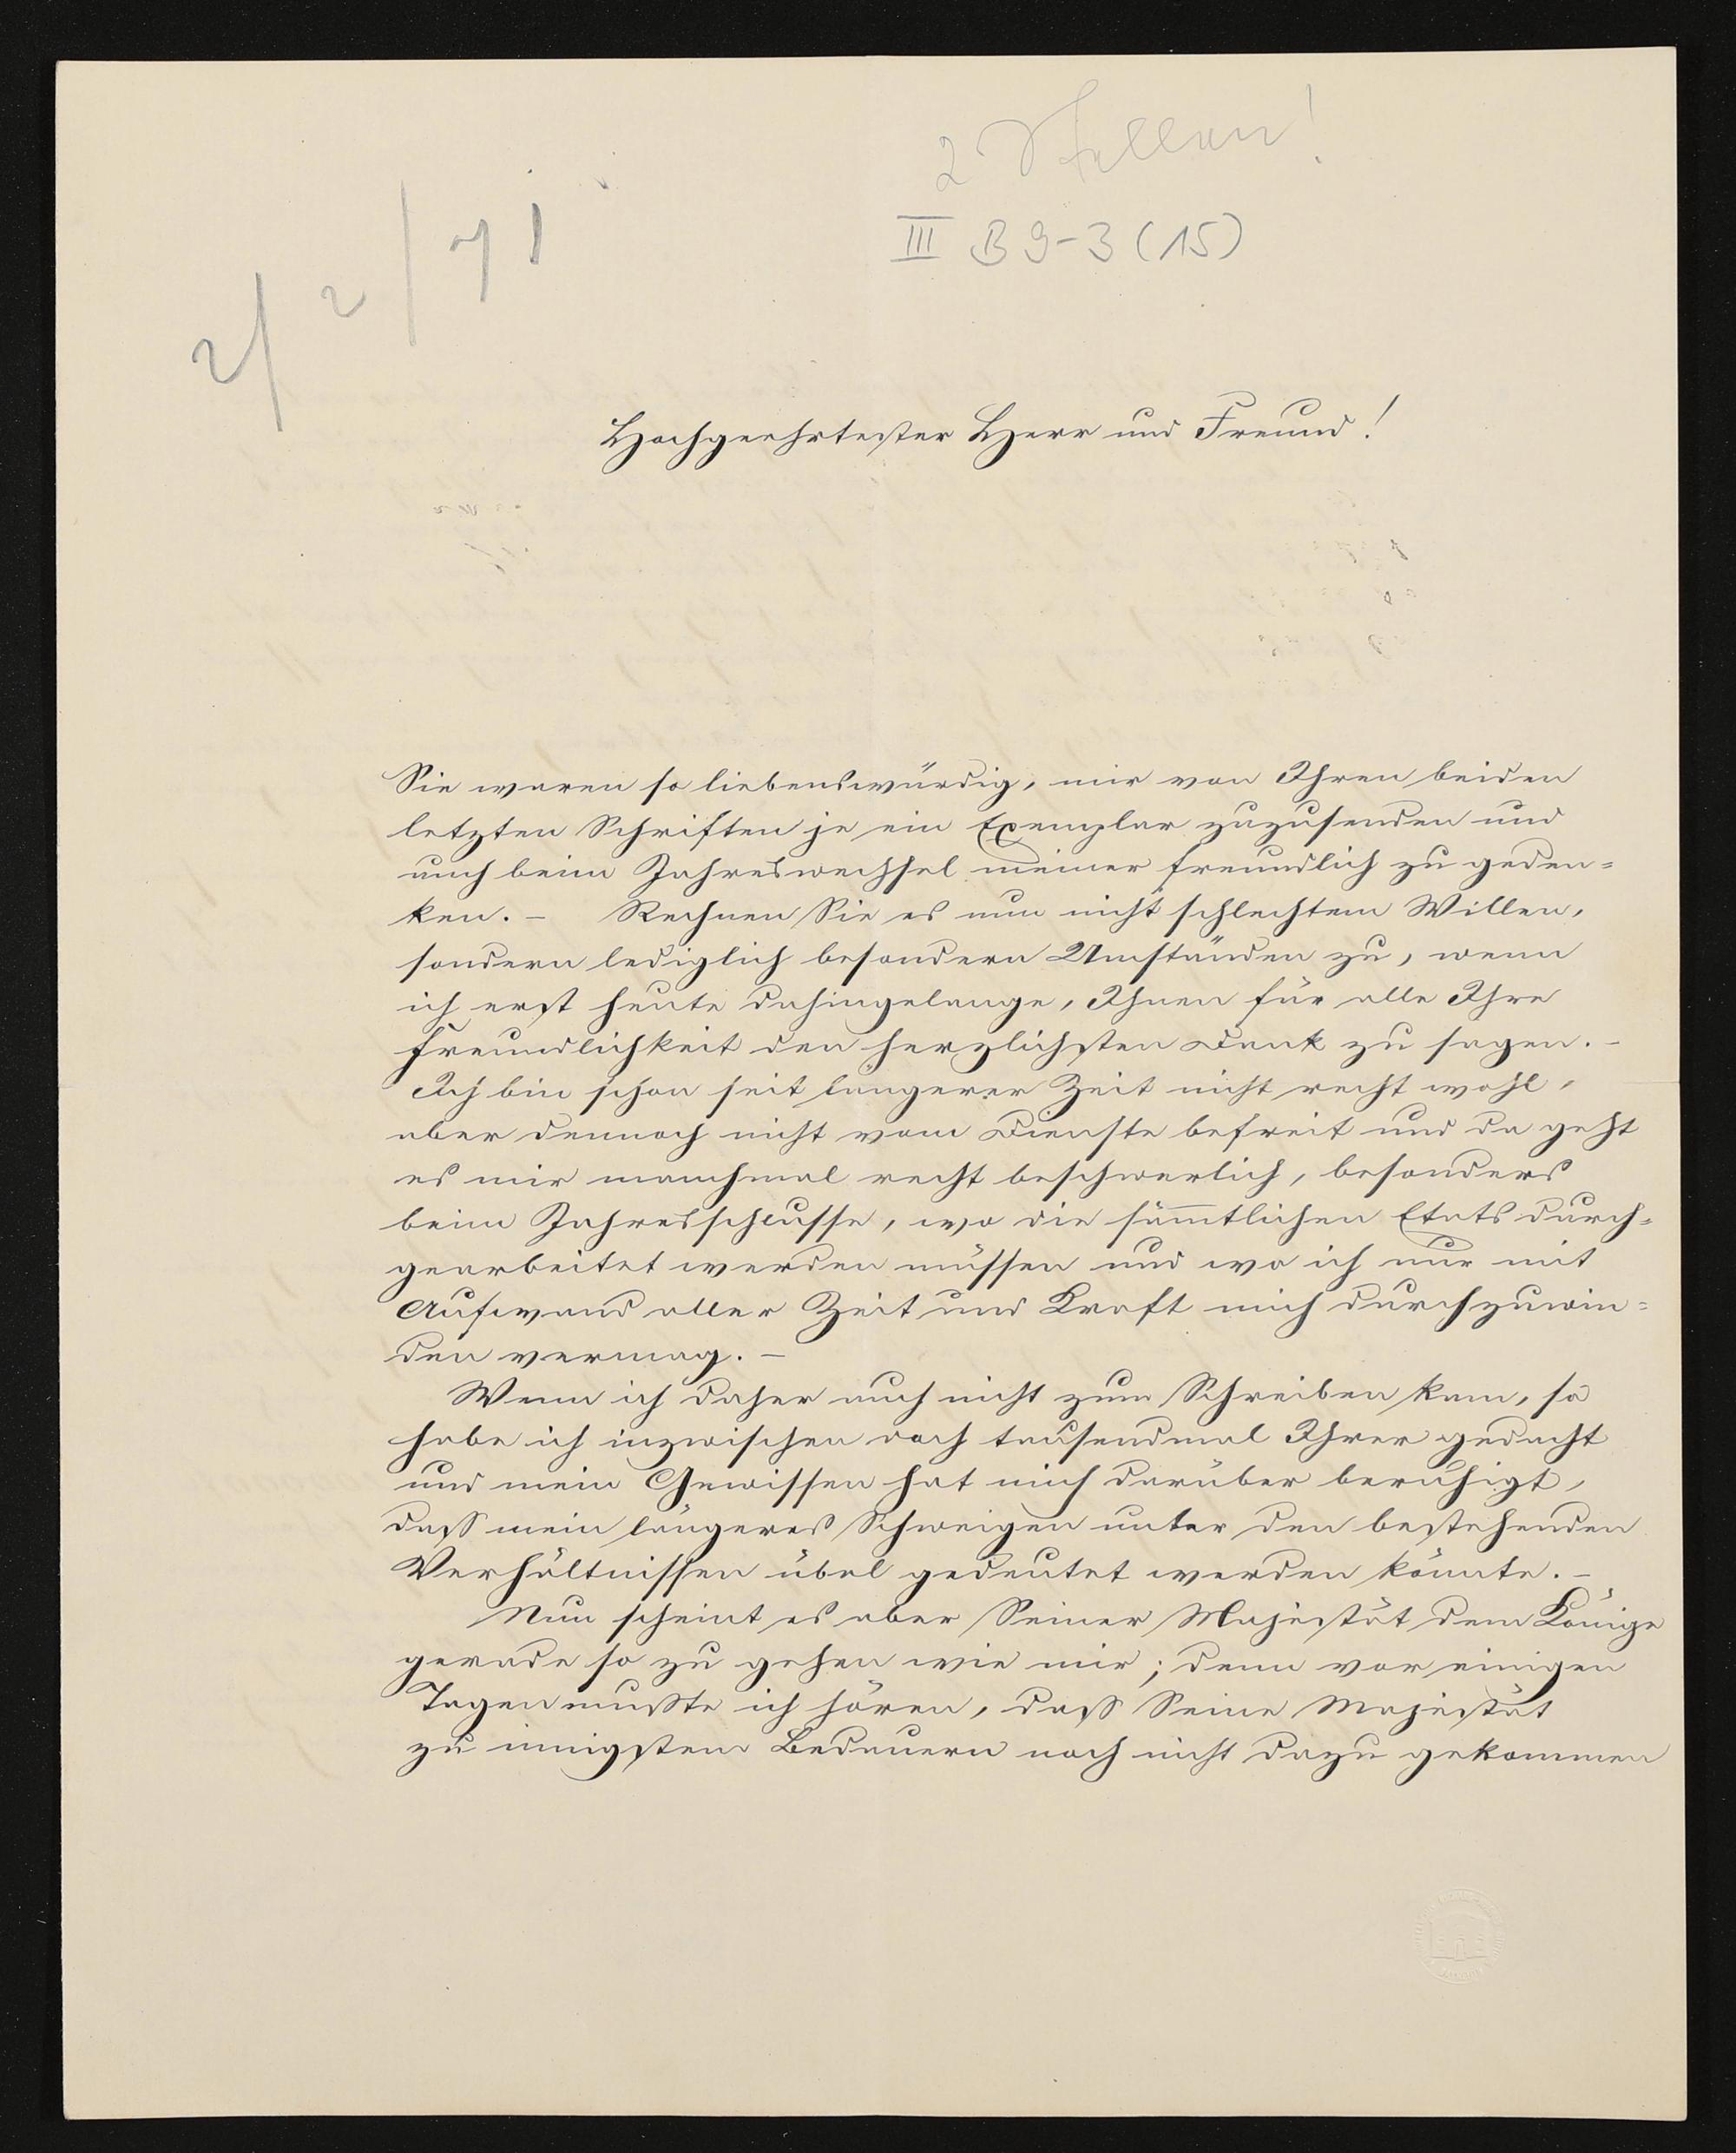 2 Stellen!
III B 9-3 (15)
2/2/71
Hochgeehrtester Herr und Freund!
Sie waren so liebenswürdig, mir von Ihren beiden
letzten Schriften je ein Exemplar zuzusenden und
auch beim Jahreswechsel meiner freundlich zu geden=
ken. – Rechnen Sie es nun nicht schlechtem Willen,
sondern lediglich besondern Umständen zu, wenn
ich erst heute dahingelange, Ihnen für alle Ihre
Freundlichkeit den herzlichsten Dank zu sagen. –
Ich bin schon seit längerer Zeit nicht recht wohl,
aber dennoch nicht vom Dienste befreit und da geht
es mir manchmal recht beschwerlich, besonders
beim Jahresschlusse, wo die sämmtlichen Etats durch=
gearbeitet werden müssen und wo ich nur mit
Aufwand aller Zeit und Kraft mich durchzuwin=
den vermag. –
Wenn ich daher auch nicht zum Schreiben kam, so
habe ich inzwischen doch tausendmal Ihrer gedacht
und mein Gewissen hat mich darüber beruhigt,
daß mein längeres Schweigen unter den bestehenden
Verhältnissen übel gedeutet werden könnte. –
Nun scheint es aber Seiner Majestät dem Könige
gerade so zu gehen wie mir; denn vor einigen
Tagen mußte ich hören, daß Seine Majestät
zu innigstem Bedauern noch nicht dazu gekommen